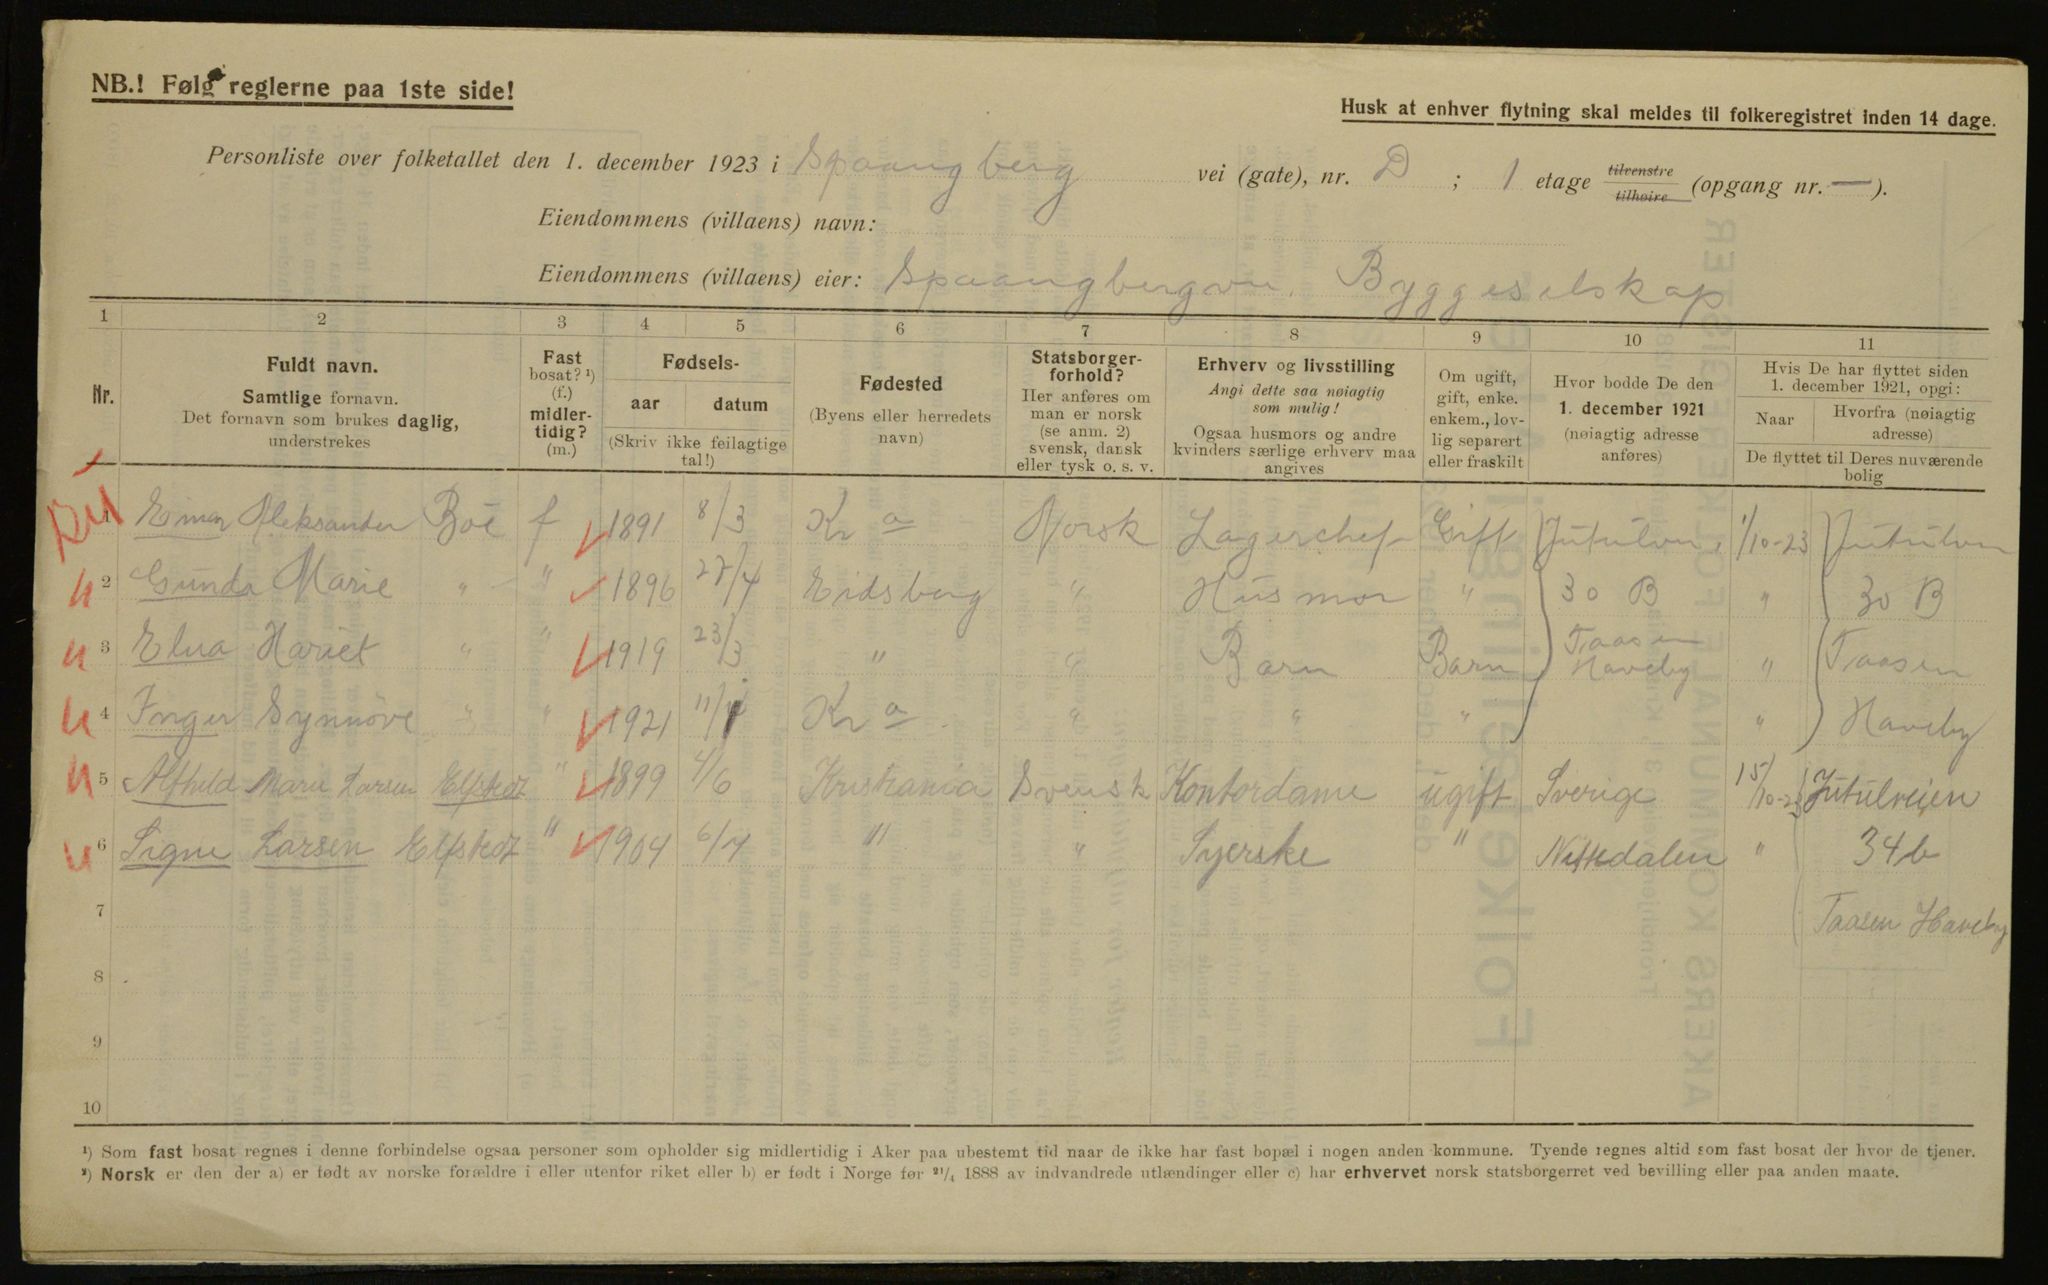 NB.! Følg reglerne paa 1ste side!
Husk at enhver flytning skal meldes til folkeregistret inden 14 dage.
Personliste over folketallet den 1. december 1923 i Spaangberg vei (gate), nr. D ; 1 etage tilvenstre tilhøire (opgang nr. — ).
Eiendommens (villaens) navn:
Eiendommens (villaens) eier: Spaangbergvn. Byggeselskap
1 2 3 4 5 6 7 8 9 10 11
Nr.
Fuldt navn.
Samtlige fornavn.
Det fornavn som brukes daglig, understrekes
Fast bosat? ¹) (f.) midlertidig? (m.)
Fødsels-
aar datum
(Skriv ikke feilagtige tal!)
Fødested
(Byens eller herredets navn)
Statsborgerforhold?
Her anføres om man er norsk (se anm. 2) svensk, dansk eller tysk o. s. v.
Erhverv og livsstilling
Angi dette saa nøiagtig som mulig!
Ogsaa husmors og andre kvinders særlige erhverv maa angives
Om ugift, gift, enke. enkem., lovlig separert eller fraskilt
Hvor bodde De den 1. december 1921 (nøiagtig adresse anføres)
Hvis De har flyttet siden 1. december 1921, opgi:
Naar Hvorfra (nøiagtig adresse)
De flyttet til Deres nuværende bolig
1 Einar Aleksander Boe f 1891 8/3 Kra Norsk Lagerchef Gift Jutulvn. 1/10-23 Jutulvn
2 Gunda Marie " " 1896 27/4 Eidsberg " Husmor " 30 B " 30 B
3 Elna Hariet " " 1919 23/3 " " Barn Barn Taasen Haveby " Taasen
4 Inger Synnöve " " 1921 11/ Kra " " " " Haveby
5 Alfhild Marie Larsen Elfstedt " 1899 4/6 Kristiania Svensk Kontordame ugift Sverige 15/10-23 Jutulveien
6 Signe Larsen Elfstedt " 1904 6/4 " " Syerske " Nittedalen " 34b
7 Taasen Haveby
8
9
10
¹) Som fast bosat regnes i denne forbindelse ogsaa personer som opholder sig midlertidig i Aker paa ubestemt tid naar de ikke har fast bopæl i nogen anden kommune. Tyende regnes altid som fast bosat der hvor de tjener.
²) Norsk er den der a) er født av norske forældre i eller utenfor riket eller b) er født i Norge før ²¹/₄ 1888 av indvandrede utlændinger eller c) har erhvervet norsk statsborgerret ved bevilling eller paa anden maate.